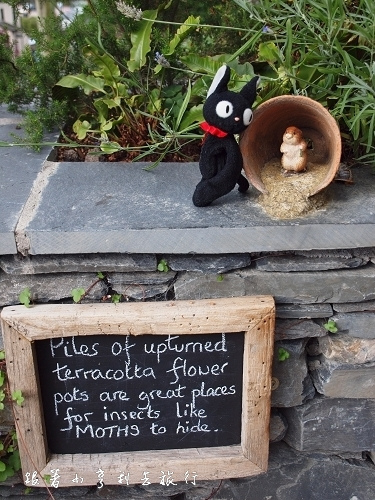 Piles of upturned
terracotta flower
pots are great places
for insects like
MOTHS to hide.
跟著小亨利去旅行